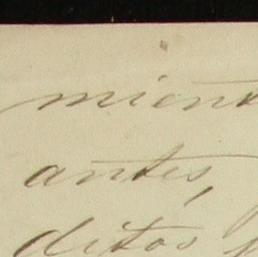 mient
antes,
ditos p